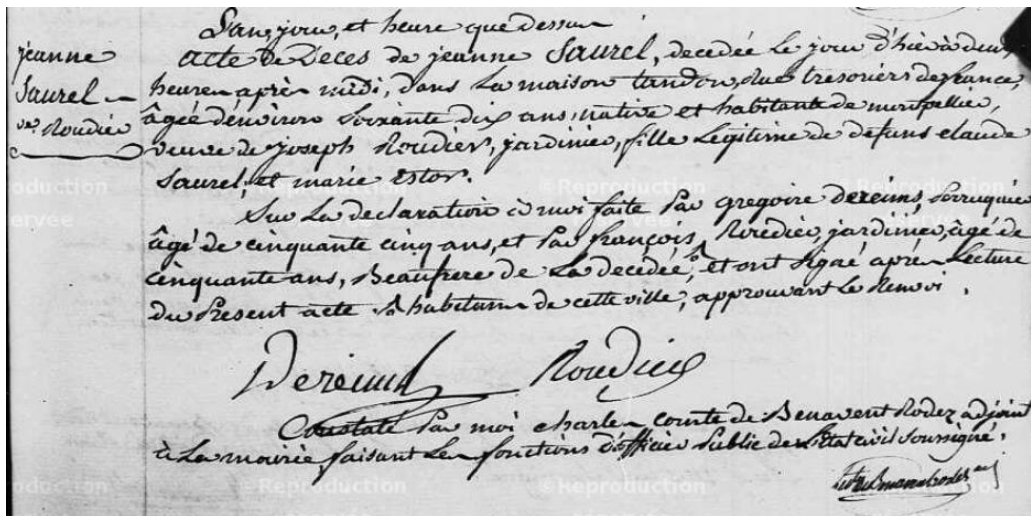 L'an, jour, et heure que dessus
jeanne
Saurel
ve. Roudier
acte de Deces de jeanne Saurel, decedée le jour d'hier à deux
heures après midi, dans la maison tandon, rue tresoriers de france,
âgée d'environ soixante dix ans, native et habitante de montpellier,
veuve de joseph Roudier, jardinier, fille legitime de defuns claude
Saurel, et marie estor.
Sur la declaration à moi faite par gregoire dereims, serrurier
âgé de cinquante cinq ans, et par françois Roudier, jardinier, âgé de
cinquante ans, Beaufrere de la decedée, et ont signé après lecture
du Present acte habitans de cette ville, approuvant le Renvoi.
Dereims Roudier
Constaté Par moi charles comte de Benavent Rodez adjoint
à la mairie, faisant les fonctions d'officier Public de l'état civil soussigné.
©Reproduction
©Reproduction
©Reproduction